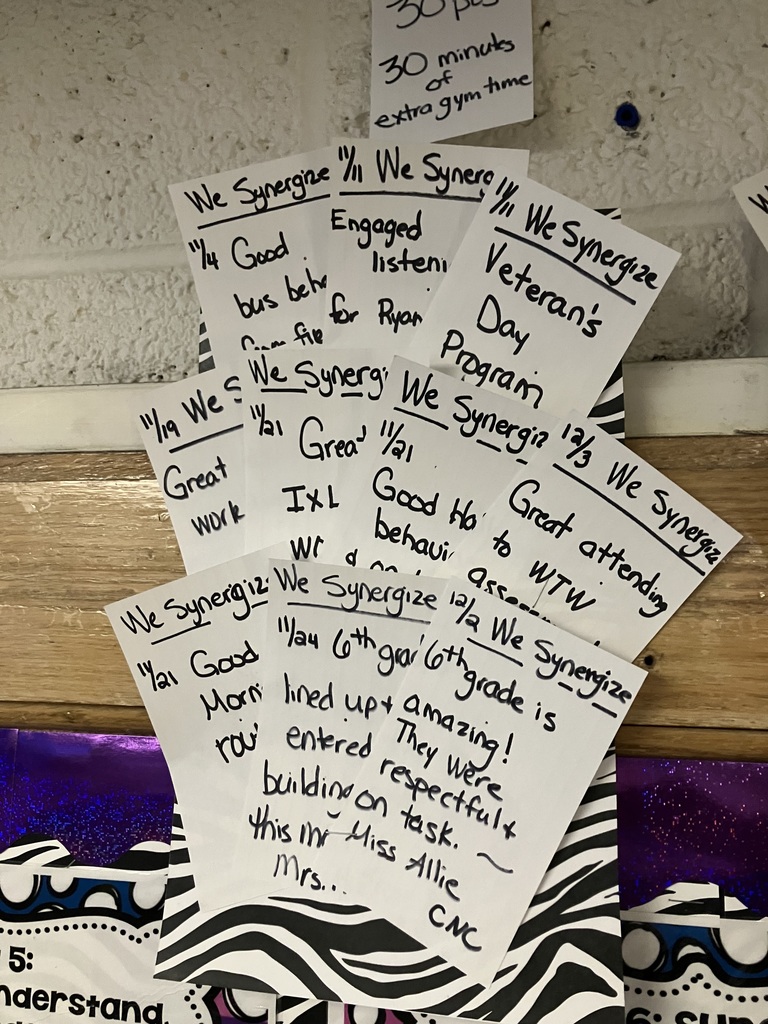 30 pts
30 minutes
of
extra gym time
We Synergize
11/4 Good
bus beh
from fie
11/11 We Synerg
Engaged
listeni
for Ryan
11/11 We Synergize
Veteran's
Day
Program
11/19 We S
Great
work
We Synergi
11/21 Great
IXL
We Synergiz
11/21
Good Ha
behavi
12/3 We Synergize
Great attending
to WTW
We Synergize
11/21 Good
Morni
rou
We Synergize
11/24 6th gra
lined up +
entered
building
this
Mrs...
12/2 We Synergize
6th grade is
amazing!
They were
respectful +
on task. ~
Miss Allie
CNC
5:
nderstand